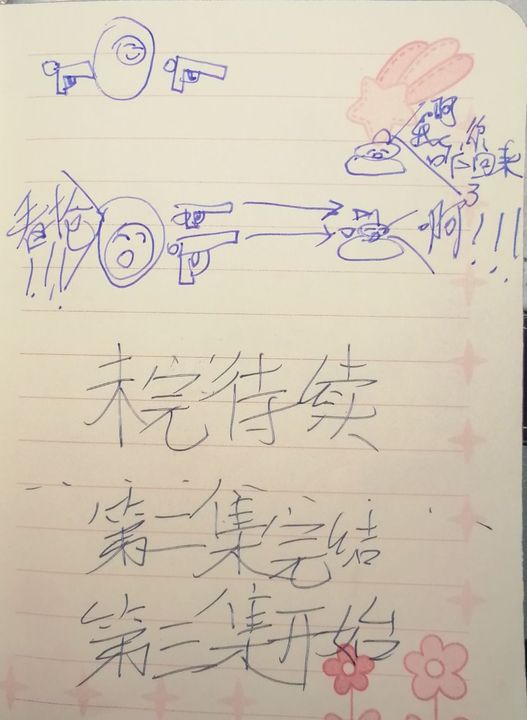 啊
我又
你
回来
了
看枪
!!!
啊!!!
未完待续
第二集完结
第三集开始